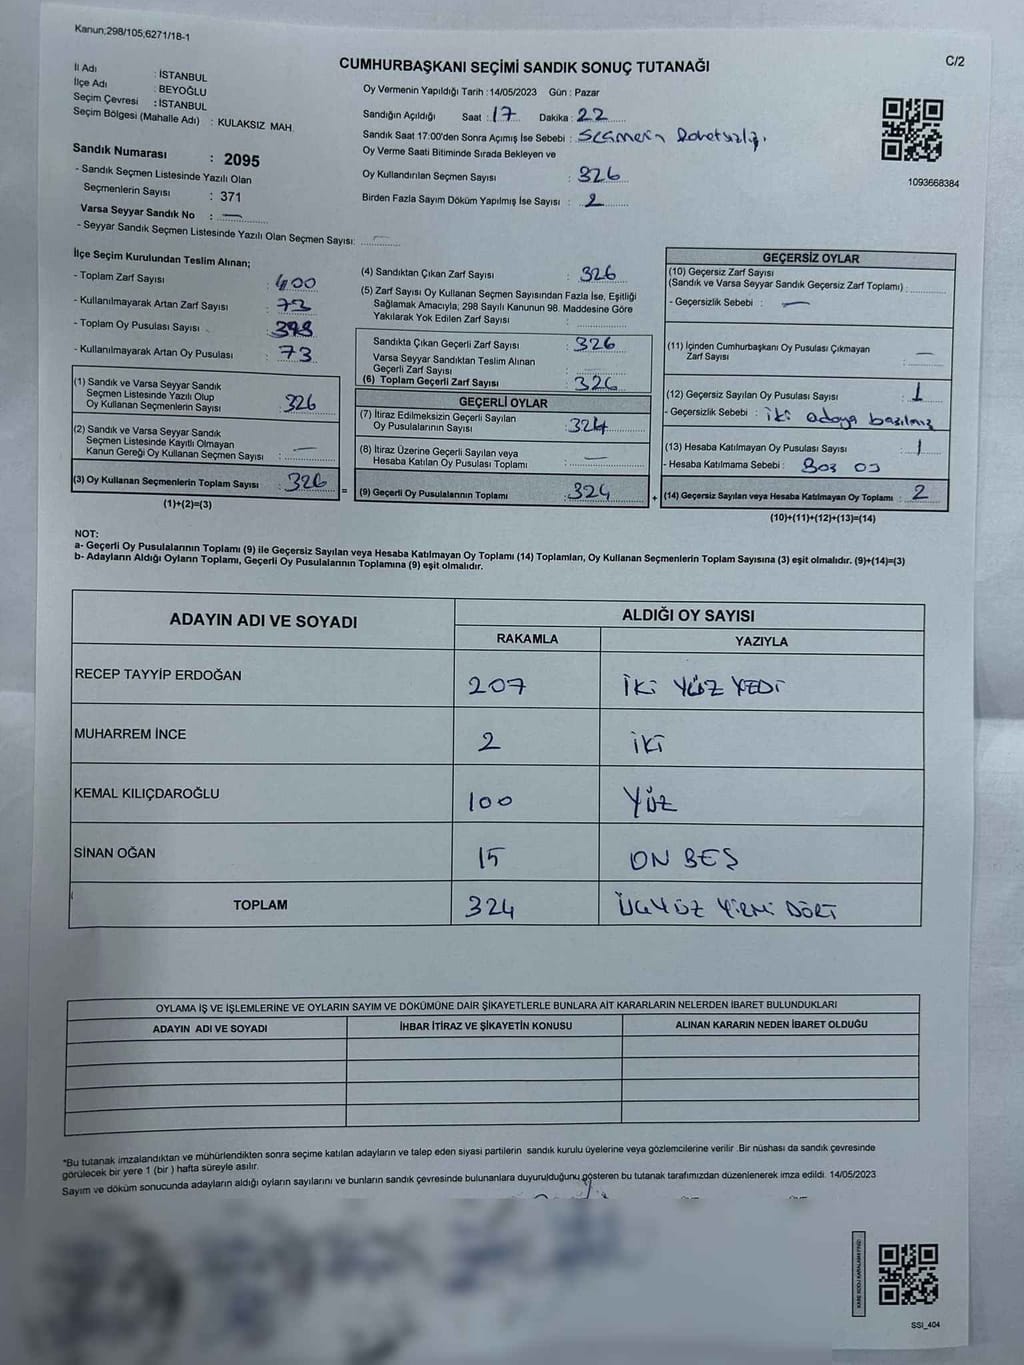 Kanun;298/105;6271/18-1
C/2
CUMHURBAŞKANI SEÇİMİ SANDIK SONUÇ TUTANAĞI
İl Adı : İSTANBUL
İlçe Adı : BEYOĞLU
Seçim Çevresi : İSTANBUL
Seçim Bölgesi (Mahalle Adı) : KULAKSIZ MAH.
Sandık Numarası : 2095
- Sandık Seçmen Listesinde Yazılı Olan
Seçmenlerin Sayısı : 371
Varsa Seyyar Sandık No : —
- Seyyar Sandık Seçmen Listesinde Yazılı Olan Seçmen Sayısı: —
Oy Vermenin Yapıldığı Tarih : 14/05/2023 Gün : Pazar
Sandığın Açıldığı Saat : 17 Dakika : 22
Sandık Saat 17:00'den Sonra Açımış İse Sebebi :
Oy Verme Saati Bitiminde Sırada Bekleyen ve
Oy Kullandırılan Seçmen Sayısı : 326
Birden Fazla Sayım Döküm Yapılmış İse Sayısı : 2
1093668384
İlçe Seçim Kurulundan Teslim Alınan;
- Toplam Zarf Sayısı : 400
- Kullanılmayarak Artan Zarf Sayısı :
- Toplam Oy Pusulası Sayısı :
- Kullanılmayarak Artan Oy Pusulası : 73
(1) Sandık ve Varsa Seyyar Sandık
Seçmen Listesinde Yazılı Olup
Oy Kullanan Seçmenlerin Sayısı : 326
(2) Sandık ve Varsa Seyyar Sandık
Seçmen Listesinde Kayıtlı Olmayan
Kanun Gereği Oy Kullanan Seçmen Sayısı : —
(3) Oy Kullanan Seçmenlerin Toplam Sayısı : 326 =
(1)+(2)=(3)
(4) Sandıktan Çıkan Zarf Sayısı : 326
(5) Zarf Sayısı Oy Kullanan Seçmen Sayısından Fazla İse, Eşitliği
Sağlamak Amacıyla; 298 Sayılı Kanunun 98. Maddesine Göre
Yakılarak Yok Edilen Zarf Sayısı :
Sandıkta Çıkan Geçerli Zarf Sayısı : 326
Varsa Seyyar Sandıktan Teslim Alınan
Geçerli Zarf Sayısı :
(6) Toplam Geçerli Zarf Sayısı : 326
GEÇERLİ OYLAR
(7) İtiraz Edilmeksizin Geçerli Sayılan
Oy Pusulalarının Sayısı : 324
(8) İtiraz Üzerine Geçerli Sayılan veya
Hesaba Katılan Oy Pusulası Toplamı : —
(9) Geçerli Oy Pusulalarının Toplamı : 324 +
GEÇERSİZ OYLAR
(10) Geçersiz Zarf Sayısı
(Sandık ve Varsa Seyyar Sandık Geçersiz Zarf Toplamı) :
- Geçersizlik Sebebi : —
(11) İçinden Cumhurbaşkanı Oy Pusulası Çıkmayan
Zarf Sayısı : —
(12) Geçersiz Sayılan Oy Pusulası Sayısı : 1
- Geçersizlik Sebebi : iki adaya basılmış
(13) Hesaba Katılmayan Oy Pusulası Sayısı : 1
- Hesaba Katılmama Sebebi : Boş oy
(14) Geçersiz Sayılan veya Hesaba Katılmayan Oy Toplamı : 2
(10)+(11)+(12)+(13)=(14)
NOT:
a- Geçerli Oy Pusulalarının Toplamı (9) ile Geçersiz Sayılan veya Hesaba Katılmayan Oy Toplamı (14) Toplamları, Oy Kullanan Seçmenlerin Toplam Sayısına (3) eşit olmalıdır. (9)+(14)=(3)
b- Adayların Aldığı Oyların Toplamı, Geçerli Oy Pusulalarının Toplamına (9) eşit olmalıdır.
ADAYIN ADI VE SOYADI ALDIĞI OY SAYISI
RAKAMLA YAZIYLA
RECEP TAYYİP ERDOĞAN 207 İKİ YÜZ YEDİ
MUHARREM İNCE 2 İKİ
KEMAL KILIÇDAROĞLU 100 YÜZ
SİNAN OĞAN 15 ON BEŞ
TOPLAM 324 ÜÇYÜZ YİRMİ DÖRT
OYLAMA İŞ VE İŞLEMLERİNE VE OYLARIN SAYIM VE DÖKÜMÜNE DAİR ŞİKAYETLERLE BUNLARA AİT KARARLARIN NELERDEN İBARET BULUNDUKLARI
ADAYIN ADI VE SOYADI İHBAR İTİRAZ VE ŞİKAYETİN KONUSU ALINAN KARARIN NEDEN İBARET OLDUĞU
*Bu tutanak imzalandıktan ve mühürlendikten sonra seçime katılan adayların ve talep eden siyasi partilerin sandık kurulu üyelerine veya gözlemcilerine verilir .Bir nüshası da sandık çevresinde
görülecek bir yere 1 (bir ) hafta süreyle asılır.
Sayım ve döküm sonucunda adayların aldığı oyların sayılarını ve bunların sandık çevresinde bulunanlara duyurulduğunu gösteren bu tutanak tarafımızdan düzenlenerek imza edildi. 14/05/2023
SSI_404